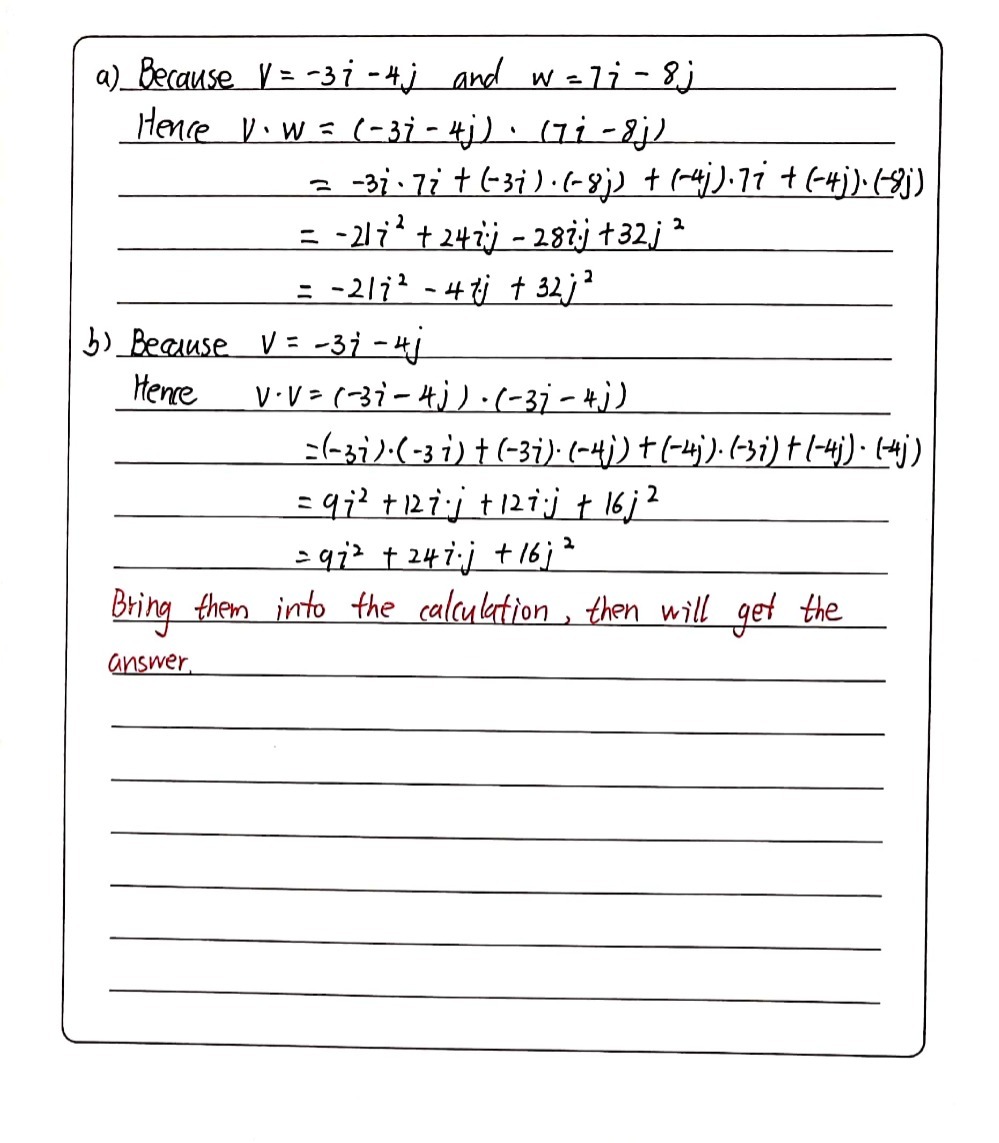 a) Because V = -3i - 4j and w = 7i - 8j
Hence V·W = (-3i - 4j) · (7i - 8j)
= -3i·7i + (-3i)·(-8j) + (-4j)·7i + (-4j)·(-8j)
= -21i² + 24i·j - 28i·j + 32j²
= -21i² - 4i·j + 32j²
b) Because V = -3i - 4j
Hence V·V = (-3i - 4j)·(-3i - 4j)
= (-3i)·(-3i) + (-3i)·(-4j) + (-4j)·(-3i) + (-4j)·(-4j)
= 9i² + 12i·j + 12i·j + 16j²
= 9i² + 24i·j + 16j²
Bring them into the calculation, then will get the
answer.